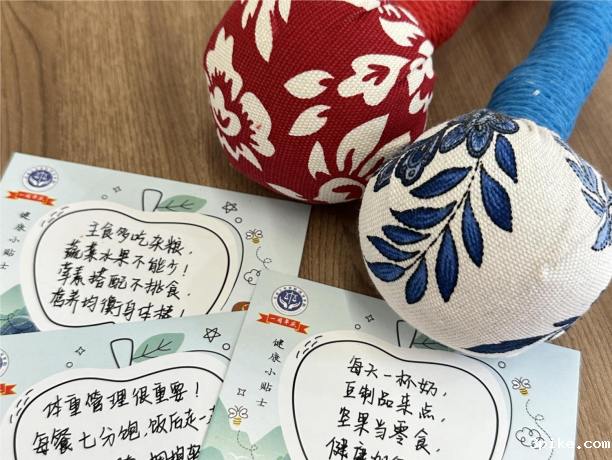 一周年庆
健康小贴士
主食多吃杂粮，
蔬菜水果不能少！
荤素搭配不挑食，
营养均衡身体棒！
体重管理很重要！
每餐七分饱，饭后走一
一周年庆
健康小贴士
每天一杯奶，
豆制品来点，
坚果当零食，
健康